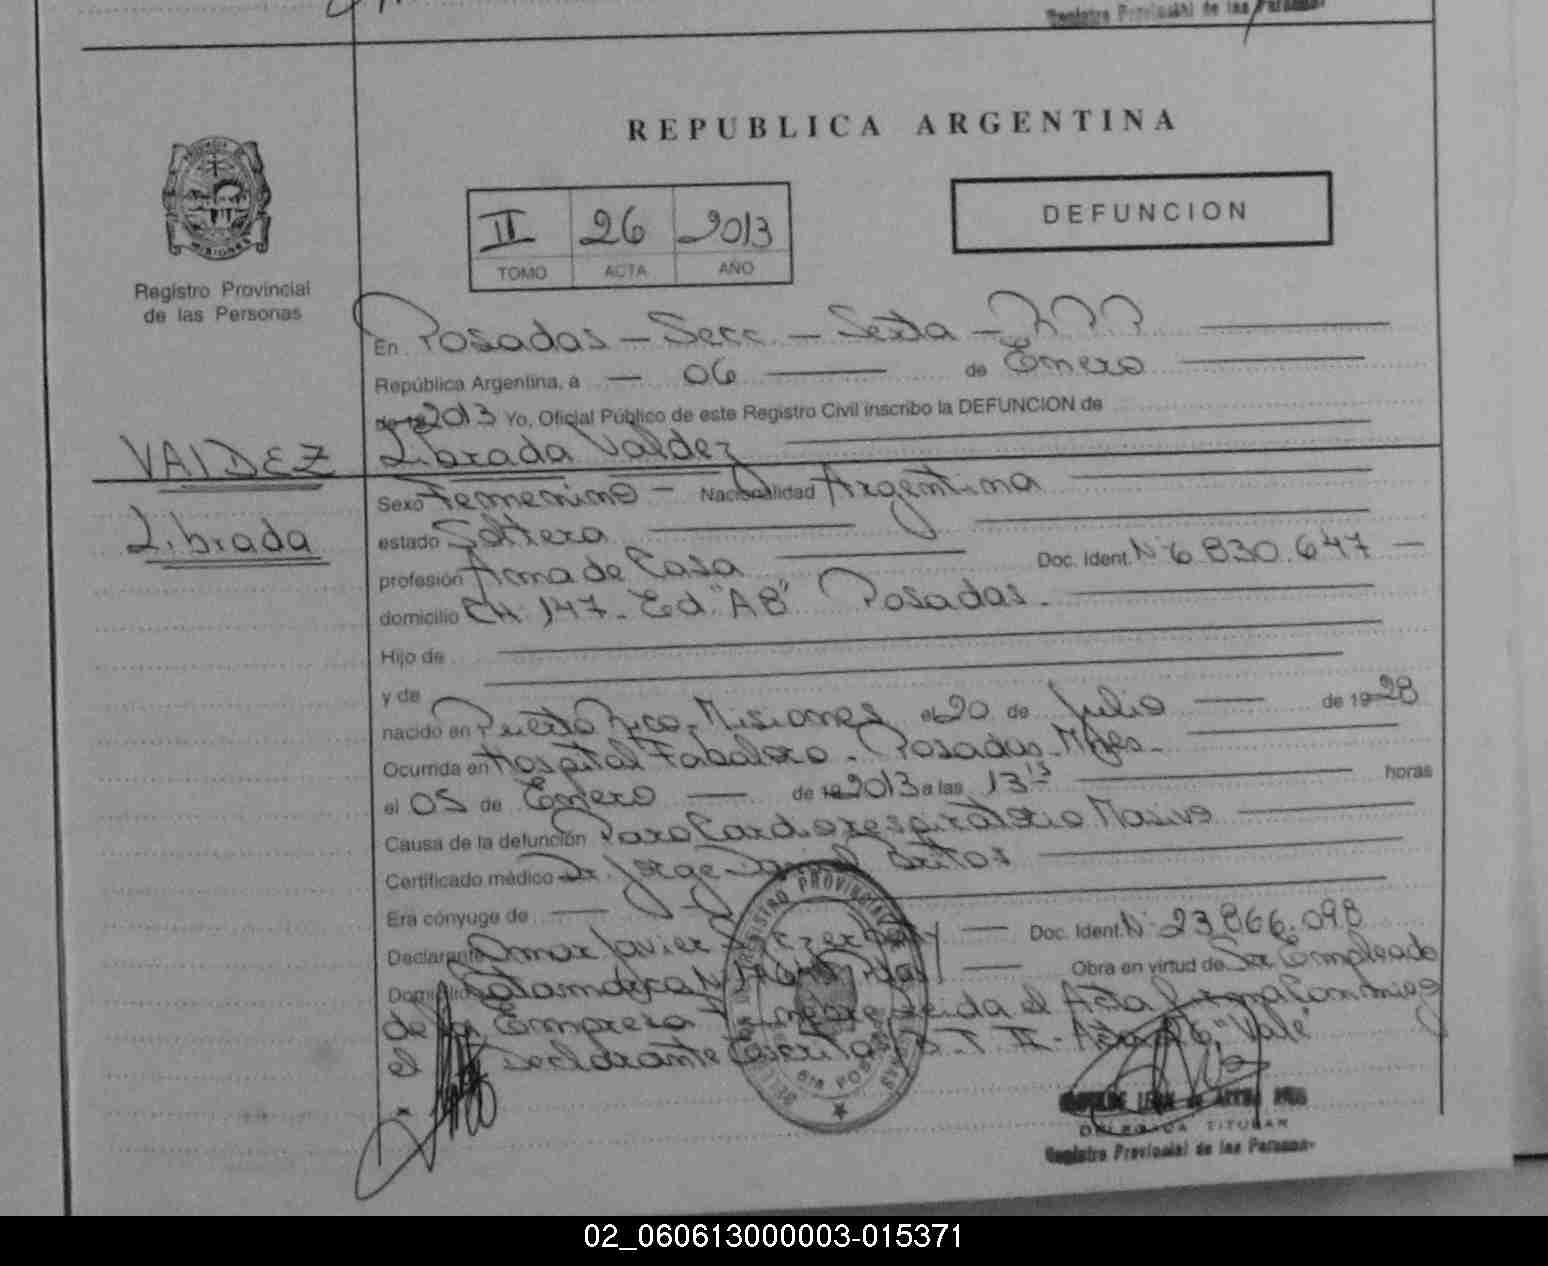 Registro Provincial de las Personas
REPUBLICA ARGENTINA
II 26 2013
TOMO ACTA AÑO
DEFUNCION
MISIONES
Registro Provincial
de las Personas
En Posadas - Secc - Sexta -
República Argentina, a - 06 de Enero
de 19 2013 Yo, Oficial Público de este Registro Civil inscribo la DEFUNCION de
VALDEZ
Librada
Librada Valdez
Sexo Femenino - Nacionalidad Argentina
estado Soltera
profesión Ama de Casa Doc. Ident. Nº 6.830.647 -
domicilio CH. 147 - Ed. "A8" Posadas -
Hijo de
y de
nacido en Puerto Rico, Misiones el 20 de Julio de 19 28
Ocurrida en Hospital Fabaloro - Posadas - Mnes -
el 05 de Enero de 19 2013 a las 13 15 horas
Causa de la defunción Paro Cardiorespiratorio Masivo
Certificado médico Dr. Jorge Britos
Era cónyuge de
Declarante Omar Javier Doc. Ident. Nº 23.866.098
Domicilio Pdas Obra en virtud de Ser Empleado
de la Empresa leida el Acta firma Conmigo
el Declarante T II - Acta 26, "Vale"
REGISTRO PROVINCIAL
6ta POSADAS
DELEGADA TITULAR
Registro Provincial de las Personas
02_060613000003-015371